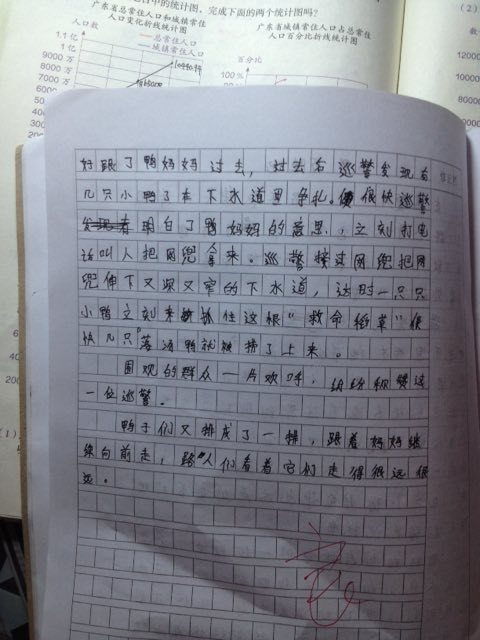 中的统计图，完成下面的两个统计图吗？
广东省总常住人口和城镇常住
人口变化折线统计图
广东省城镇常住人口占总常住
人口百分比折线统计图
人口数
总常住人口
城镇常住人口
百分比
1.1亿
1亿
9000万
8000万
7000万
100 %
(2)
数
12000
10000
8000
(1)
好跟了鸭妈妈过去，过去后巡警发现有
几只小鸭子在下水道里争扎。很快巡警
明白了鸭妈妈的意思，立刻打电
话叫人把网兜拿来。巡警接过网兜把网
兜伸下又深又窄的下水道，这时一只只
小鸭立刻来抓住这根“救命稻草”很
快几只落汤鸭就被捞了上来。
围观的群众一片欢呼，纷纷称赞这
一位巡警。
鸭子们又排成了一排，跟着妈妈继
续向前走，路人们看着它们走得很远很
远。